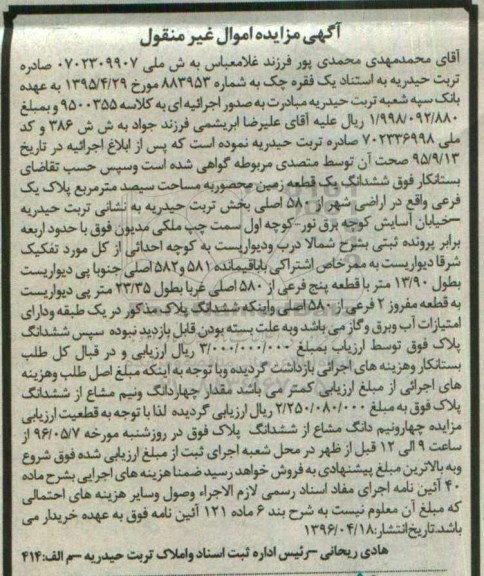 آگهی مزایده اموال غیر منقول
آقای محمدمهدی محمدی پور فرزند غلامعباس به ش ملی ۰۷۰۲۳۰۹۹۰۷ صادره
تربت حیدریه به استناد یک فقره چک به شماره ۸۸۳۹۵۳ مورخ ۱۳۹۵/۴/۲۹ به عهده
بانک سپه شعبه تربت حیدریه مبادرت به صدور اجرائیه ای به کلاسه ۹۵۰۰۳۵۵ و بمبلغ
۱/۹۹۸/۰۹۲/۸۸۰ ریال علیه آقای علیرضا ابریشمی فرزند جواد به ش ش ۳۸۶ و کد
ملی ۷۰۲۳۳۶۹۹۸ صادره تربت حیدریه نموده است که پس از ابلاغ اجرائیه در تاریخ
۹۵/۹/۱۳ صحت آن توسط متصدی مربوطه گواهی شده است وسپس حسب تقاضای
بستانکار فوق ششدانگ یک قطعه زمین محصوربه مساحت سیصد مترمربع پلاک یک
فرعی واقع در اراضی شهر از ۵۸۰ اصلی بخش تربت حیدریه به نشانی تربت حیدریه
–خیابان آسایش کوچه برق نور-کوچه اول سمت چپ ملکی مدیون فوق با حدود اربعه
برابر پرونده ثبتی بشرح شمالا درب ودیواریست به کوچه احداثی از کل مورد تفکیک
شرقا دیواریست به ممرخاص اشتراکی باباقیمانده ۵۸۱ و۵۸۲ اصلی جنوبا پی دیواریست
بطول ۱۳/۹۰ متر با قطعه پنج فرعی از ۵۸۰ اصلی غربا بطول ۲۳/۳۵ متر پی دیواریست
به قطعه مفروز ۲ فرعی از ۵۸۰ اصلی واینکه ششدانگ پلاک مذکور در یک طبقه ودارای
امتیازات آب وبرق و گاز می باشد وبه علت بسته بودن قابل بازدید نبوده سپس ششدانگ
پلاک فوق توسط ارزیاب بمبلغ ۳/۰۰۰/۰۰۰/۰۰۰ ریال ارزیابی و در قبال کل طلب
بستانکار وهزینه های اجرائی بازداشت گردیده وبا توجه به اینکه مبلغ اصل طلب وهزینه
های اجرائی از مبلغ ارزیابی کمتر می باشد مقدار چهاردانگ ونیم مشاع از ششدانگ
پلاک فوق به مبلغ ۲/۲۵۰/۰۸۰/۰۰۰ ریال ارزیابی گردیده لذا با توجه به قطعیت ارزیابی
مزایده چهارونیم دانگ مشاع از ششدانگ پلاک فوق در روزشنبه مورخه ۹۶/۰۵/۷ از
ساعت ۹ الی ۱۲ قبل از ظهر در محل شعبه اجرای ثبت از مبلغ ارزیابی شده فوق شروع
وبه بالاترین مبلغ پیشنهادی به فروش خواهد رسید ضمنا هزینه های اجرایی بشرح ماده
۴۰ آئین نامه اجرای مفاد اسناد رسمی لازم الاجراء وصول وسایر هزینه های احتمالی
که مبلغ آن معلوم نیست به شرح بند ۶ ماده ۱۲۱ آئین نامه فوق به عهده خریدار می
باشد.تاریخ انتشار:۱۳۹۶/۰۴/۱۸
هادی ریحانی –رئیس اداره ثبت اسناد واملاک تربت حیدریه –م الف:۴۱۴